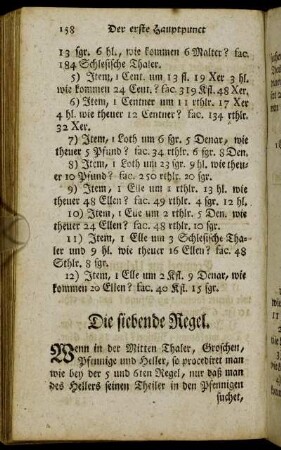 158 Der erste Hauptpunct
13 sgr. 6 hl., wie kommen 6 Malter? fac.
184 Schlesische Thaler.
5) Item, 1 Cent. um 13 fl. 19 Xer 3 hl.
wie kommen 24 Cent.? fac. 319 Kfl. 48 Xer.
6) Item, 1 Centner um 11 rthlr. 17 Xer
4 hl. wie theuer 12 Centner? fac. 134 rthlr.
32 Xer.
7) Item, 1 Loth um 6 sgr. 5 Denar, wie
theuer 5 Pfund? fac. 34 rthlr. 6 sgr. 8 Den.
8) Item, 1 Loth um 23 sgr. 9 hl. wie theu-
er 10 Pfund? fac. 250 rthlr. 20 sgr.
9) Item, 1 Elle um 1 rthlr. 13 hl. wie
theuer 48 Ellen? fac. 49 rthlr. 4 sgr. 12 hl.
10) Item, 1 Elle um 2 rthlr. 5 Den. wie
theuer 24 Ellen? fac. 48 rthlr. 10 sgr.
11) Item, 1 Elle um 3 Schlesische Tha-
ler und 9 hl. wie theuer 16 Ellen? fac. 48
Sthlr. 8 sgr.
12) Item, 1 Elle um 2 Kfl. 9 Denar, wie
kommen 20 Ellen? fac. 40 Kfl. 15 sgr.
Die siebende Regel.
Wenn in der Mitten Thaler, Groschen,
Pfennige und Heller, so procediret man
wie bey der 5 und 6ten Regel, nur daß man
des Hellers seinen Theiler in den Pfennigen
suchet,